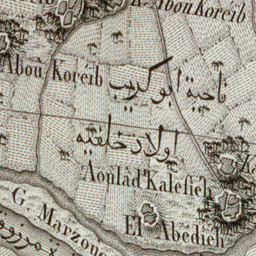 Abou Koreib
Abou Koreib
ناحية ابو كريب
اولاد خلفيه
Aoulâd Kalefieh
El Abédieh
G. Marzouq